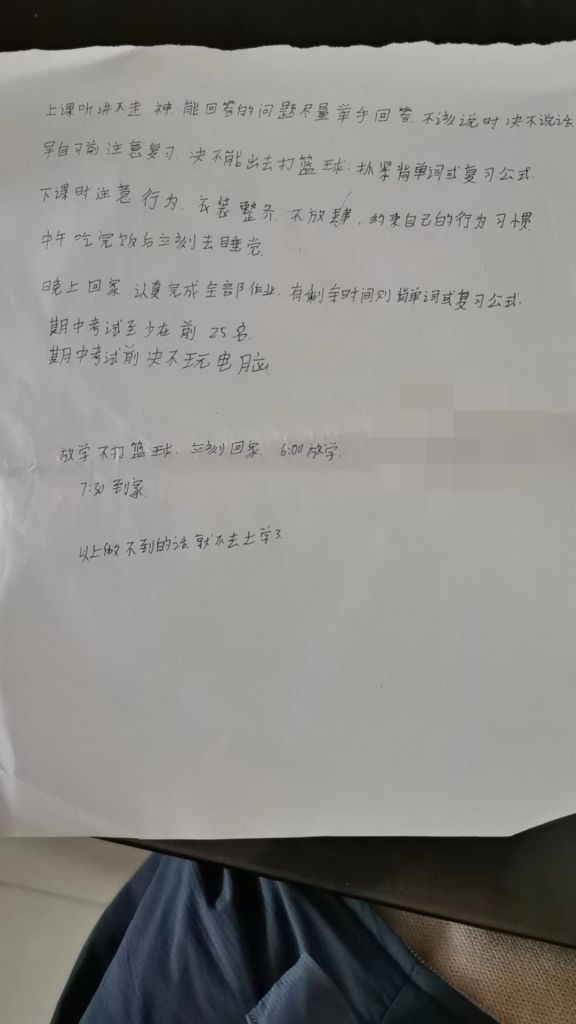 上课听讲不走神.能回答的问题尽量举手回答.不该说时决不说话.
早自习前注意复习.决不能出去打篮球.抓紧背单词或复习公式.
下课时注意行为.衣装整齐.不放肆.约束自己的行为习惯
中午吃完饭后立刻去睡觉.
晚上回家认真完成全部作业.有剩余时间则背单词或复习公式.
期中考试至少在前25名.
期中考试前决不玩电脑.
放学不打篮球.立刻回家.6:00放学.
7:30到家.
以上做不到的话就不去上学了